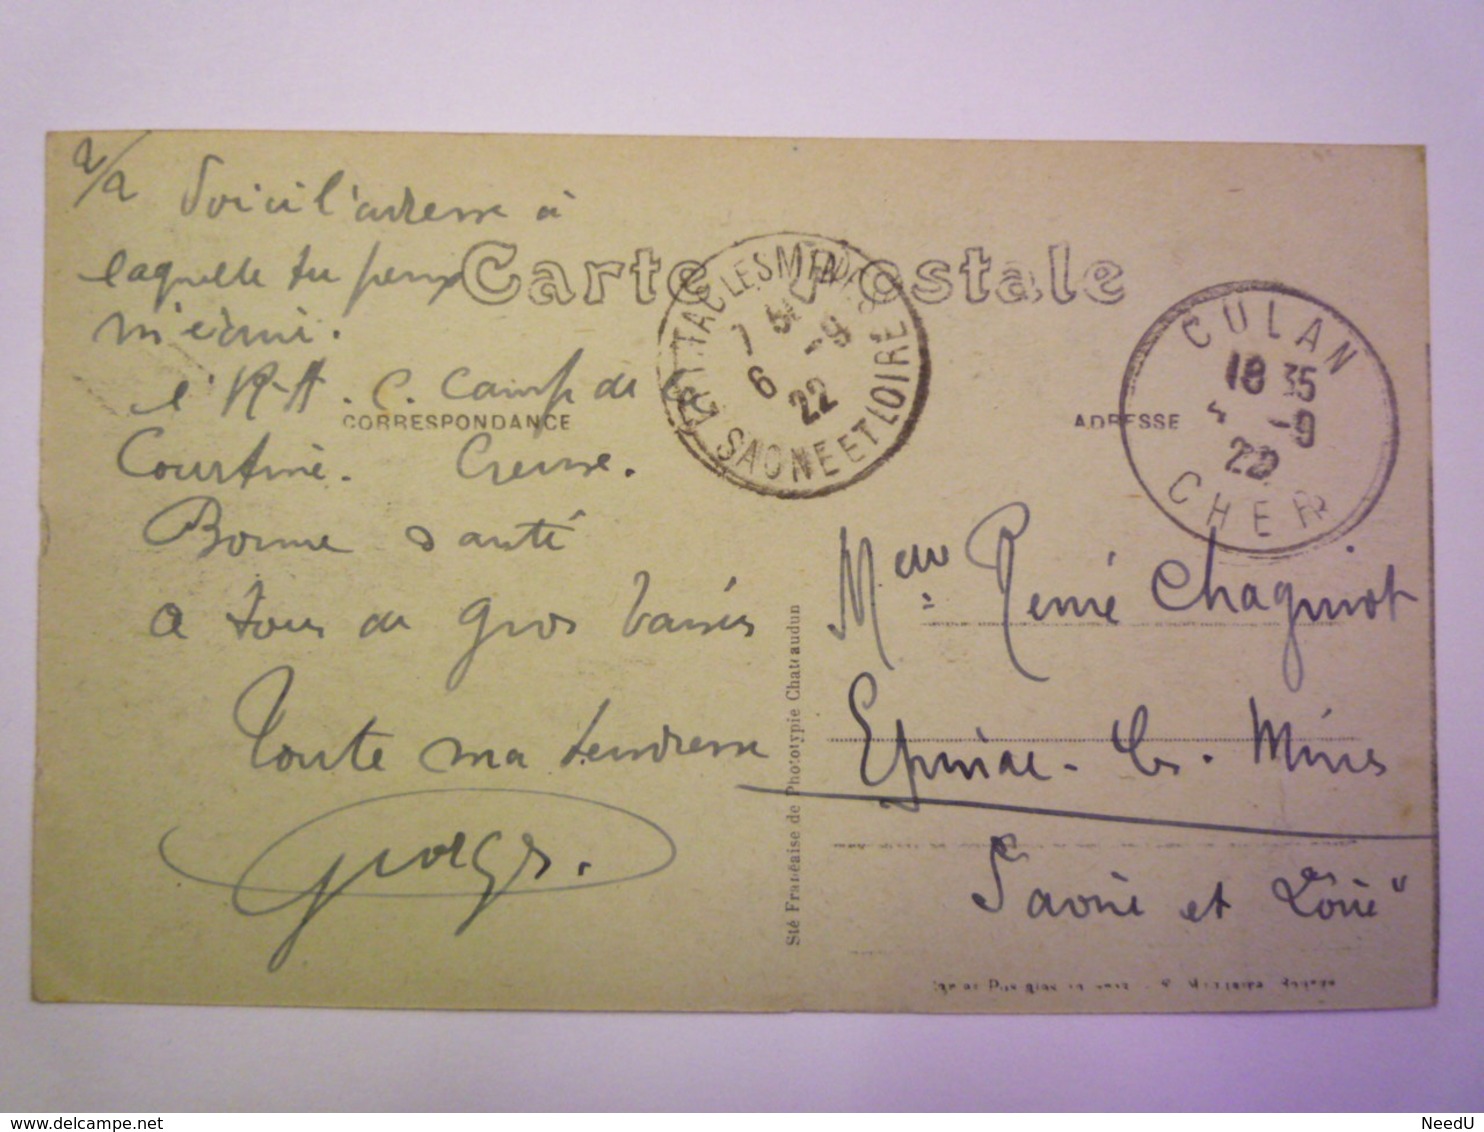 2/2 Voici l'adresse à
laquelle tu peux
m'écrire.
R.A.C. Camp de
Courtine. Creuse.
Bonne santé
a tous de gros baisés
Toute ma tendresse
Georges.
Carte Postale
CORRESPONDANCE
ADRESSE
LES MINES
SAONE ET LOIRE
6 -9
22
CULAN
18 35
-9
22
CHER
René Chagniot
Epinac-les-Mines
Saône et Loire
Sté Française de Phototypie Chateaudun
NeedU